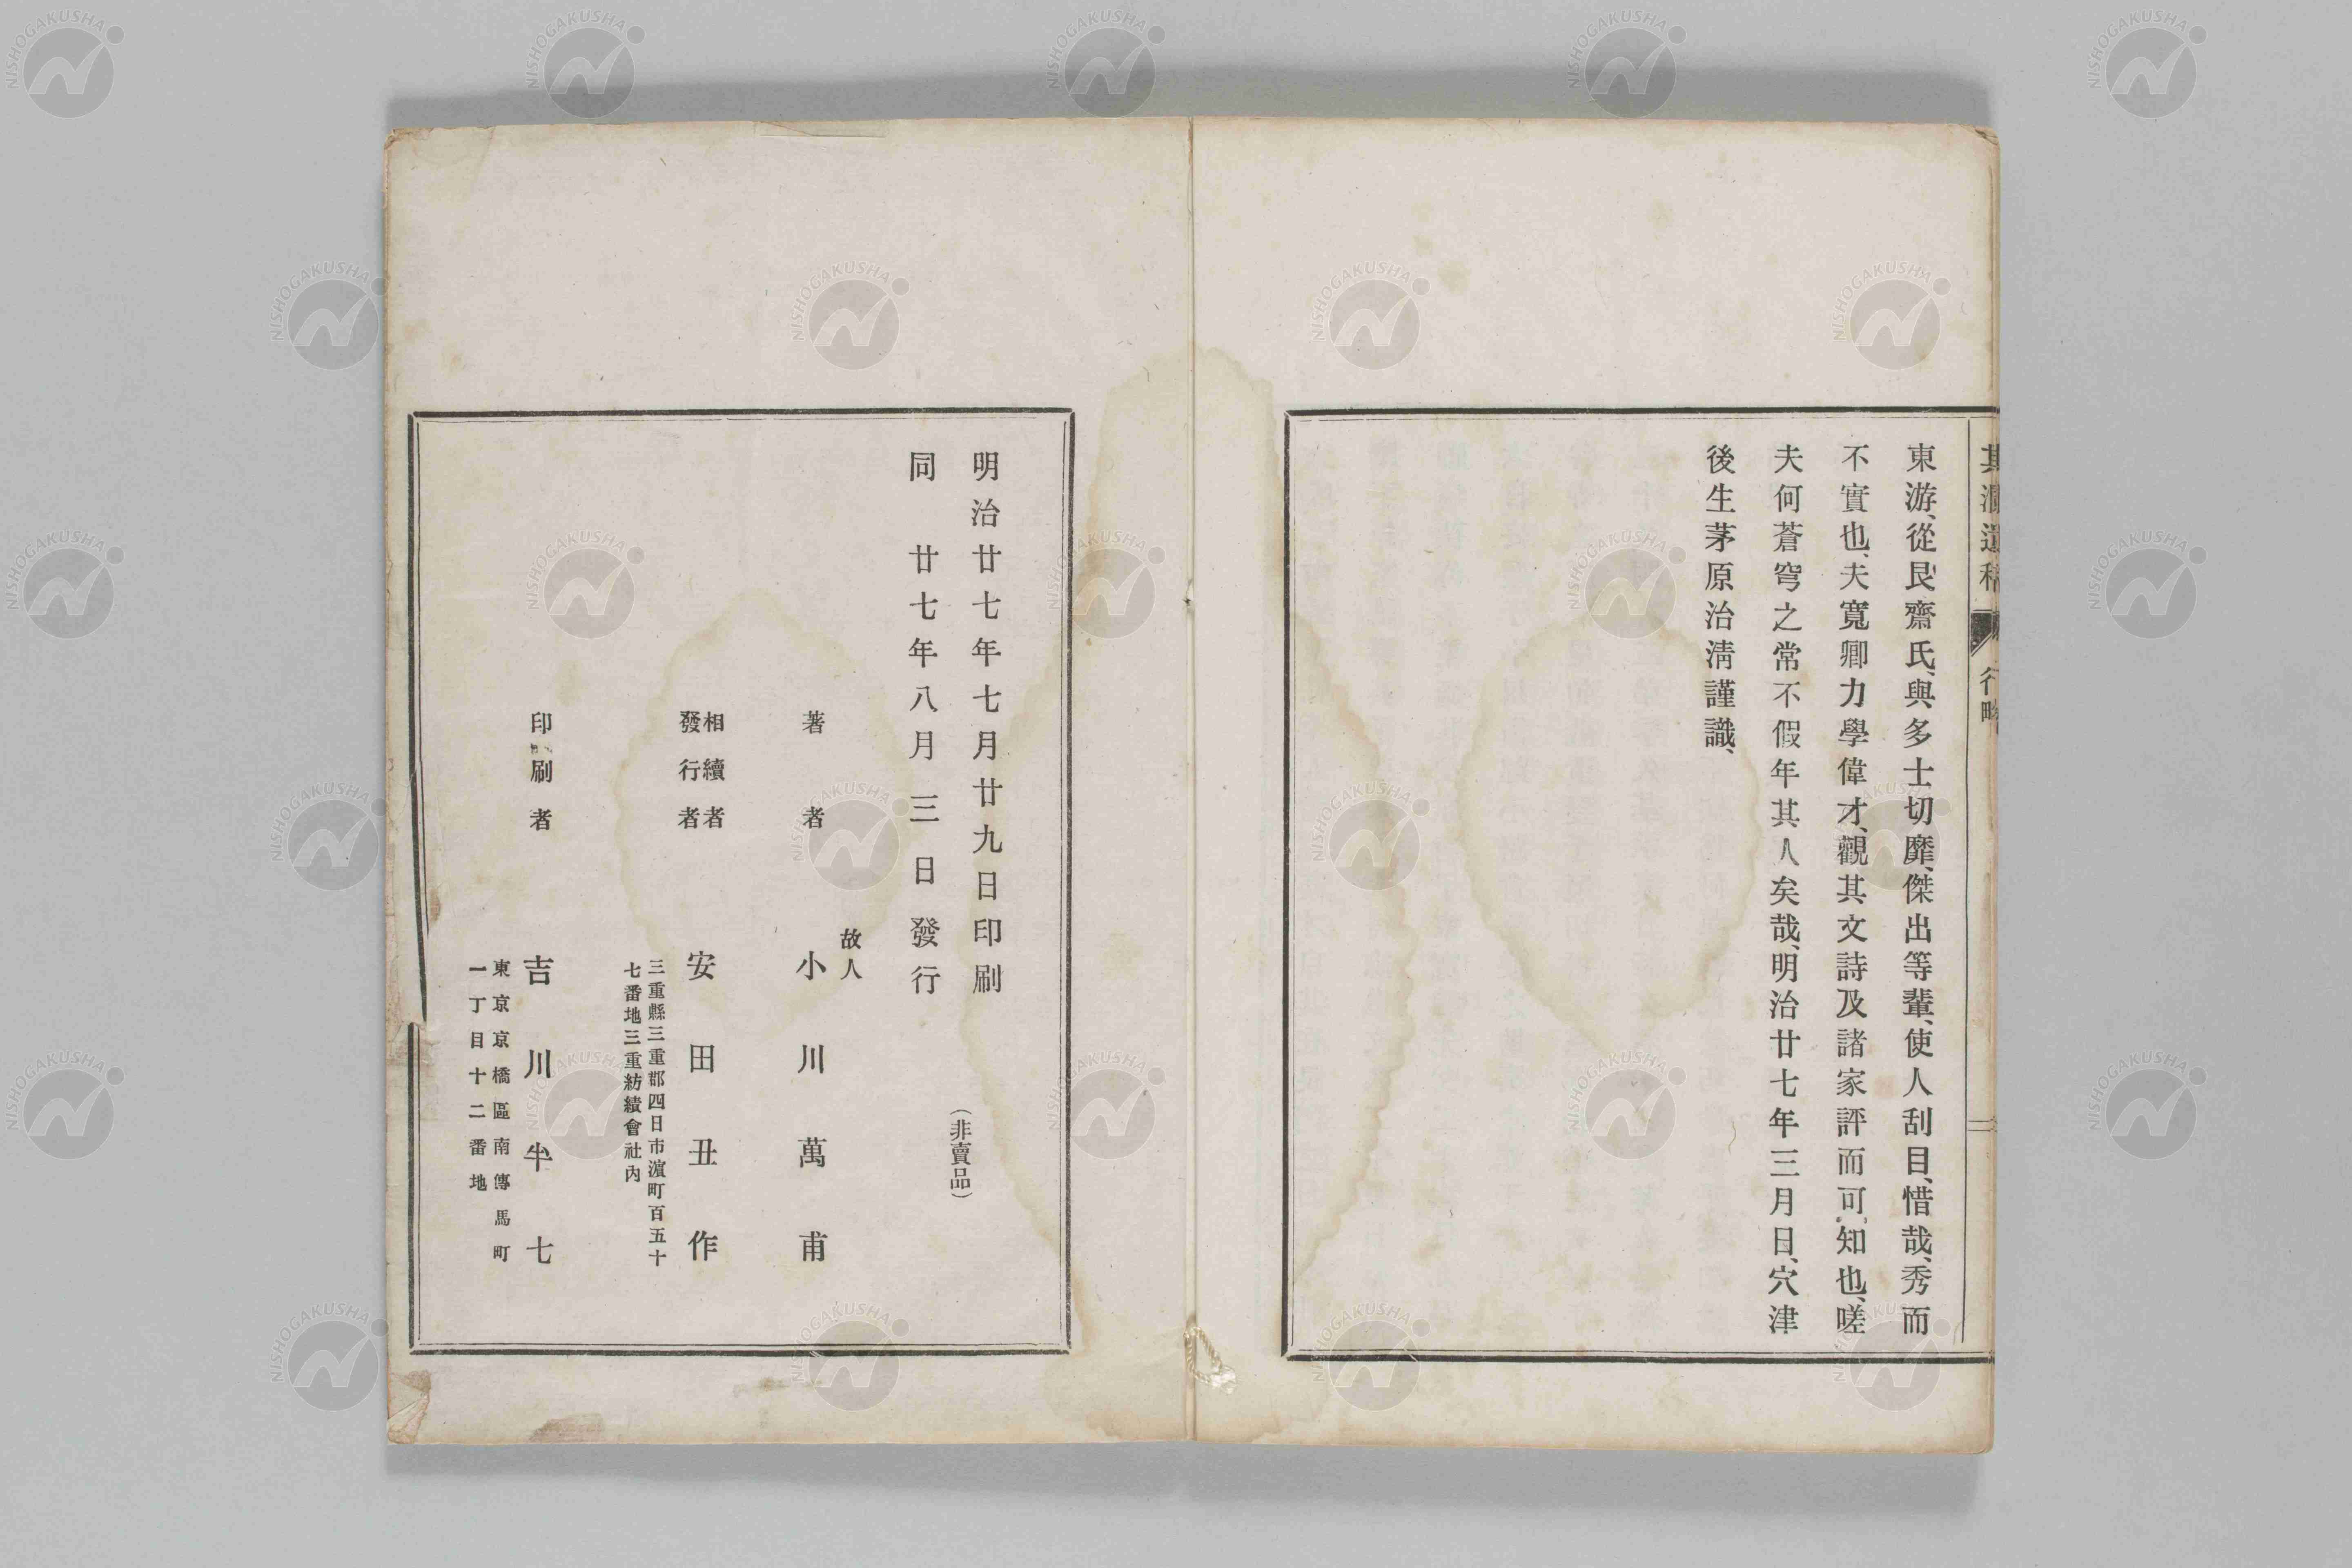 東游、從艮齋氏、與多士切靡、傑出等輩、使人刮目、惜哉、秀而
不實也、夫寬卿力學偉才、觀其文詩及諸家評而可知也、嗟
夫何蒼穹之常不假年其人矣哉、明治廿七年三月日、穴津
後生茅原治淸謹識、
明治廿七年七月廿九日印刷
同　廿七年八月三日發行
（非賣品）
著者
故人
小川萬甫
相續者
發行者
安田丑作
三重縣三重郡四日市濵町百五十
七番地三重紡績會社内
印刷者
吉川半七
東京京橋區南傳馬町
一丁目十二番地
NISHOGAKUSHA